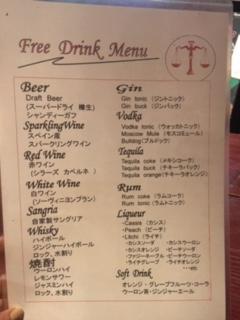 Free Drink Menu
Beer
Draft Beer
(スーパードライ 樽生)
シャンディーガフ
SparklingWine
スペイン産
スパークリングワイン
Red Wine
赤ワイン
(シラーズ カベルネ)
White Wine
白ワイン
(ソーヴィニヨンブラン)
Sangria
自家製サングリア
Whisky
ハイボール
ジンジャーハイボール
ロック、水割り
焼酎
ウーロンハイ
レモンサワー
ジャスミンハイ
ロック、水割り
Gin
Gin tonic (ジントニック)
Gin buck (ジンバック)
Vodka
Vodka tonic (ウォッカトニック)
Moscow Mule (モスコミュール)
Bulldog(ブルドック)
Tequila
Tequila coke (メキシコーク)
Tequila buck (テキーラバック)
Tequila orange(テキーラオレンジ)
Rum
Rum coke (ラムコーク)
Rum tonic (ラムトニック)
Liqueur
・Cassis (カシス)
・Peach (ピーチ)
・Litchi (ライチ)
・カシスソーダ ・カシスウーロン
・カシスオレンジ ・ピーチソーダ
・ファジーネーブル ・ピーチウーロン
・ライチグレープ ・ライチオレンジ
・・・etc
Soft Drink
オレンジ・グレープフルーツ・コーラ
ウーロン茶・ジンジャーエール